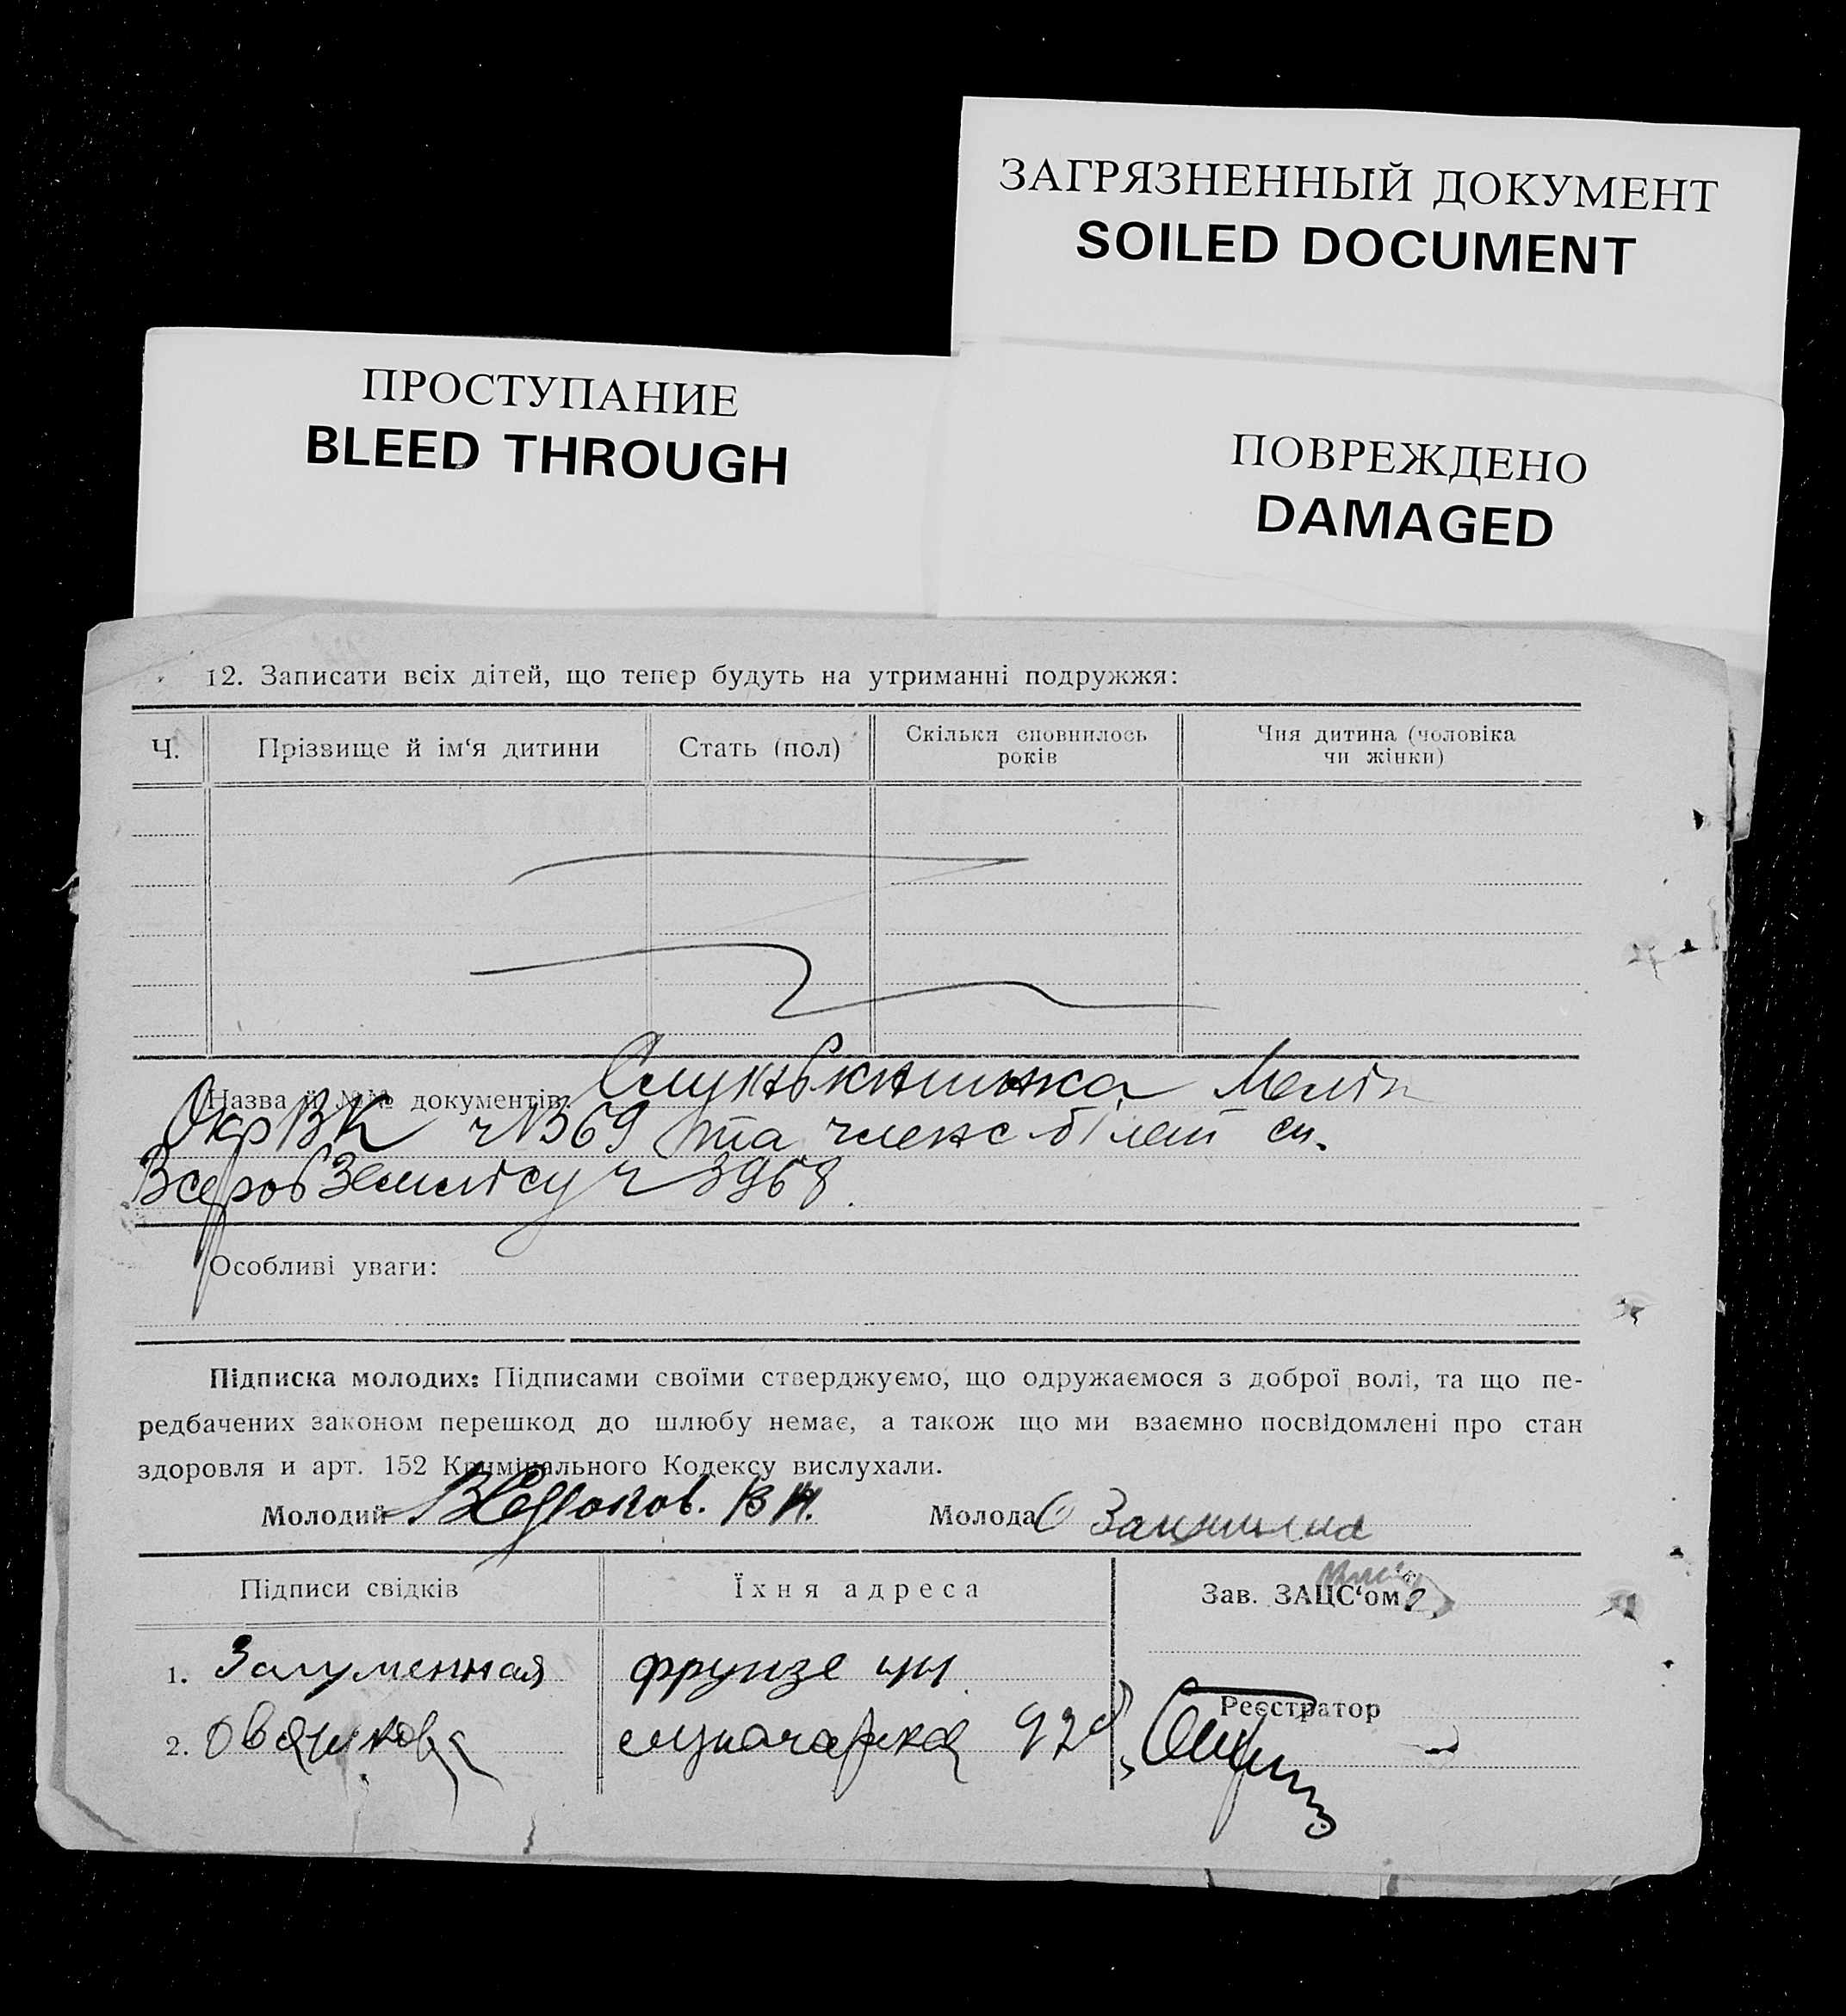 ЗАГРЯЗНЕННЫЙ ДОКУМЕНТ
SOILED DOCUMENT
ПРОСТУПАНИЕ
BLEED THROUGH
ПОВРЕЖДЕНО
DAMAGED
12. Записати всіх дітей, що тепер будуть на утриманні подружжя:
Ч.
Прізвище й ім‘я дитини
Стать (пол)
Скільки сповнилось
років
Чия дитина (чоловіка
чи жінки)
Назва й №№ документів:
ОкрВК та членс білет
3968
Особливі уваги:
Підписка молодих: Підписами своїми стверджуємо, що одружаємося з доброї волі, та що пе-
редбачених законом перешкод до шлюбу немає, а також що ми взаємно посвідомлені про стан
здоровля и арт. 152 Кримінального Кодексу вислухали.
Молодий
Молода
Підписи свідків
Їхня адреса
Зав. ЗАЦС‘ом
1. Загуменная фрунзе
Реєстратор
2.